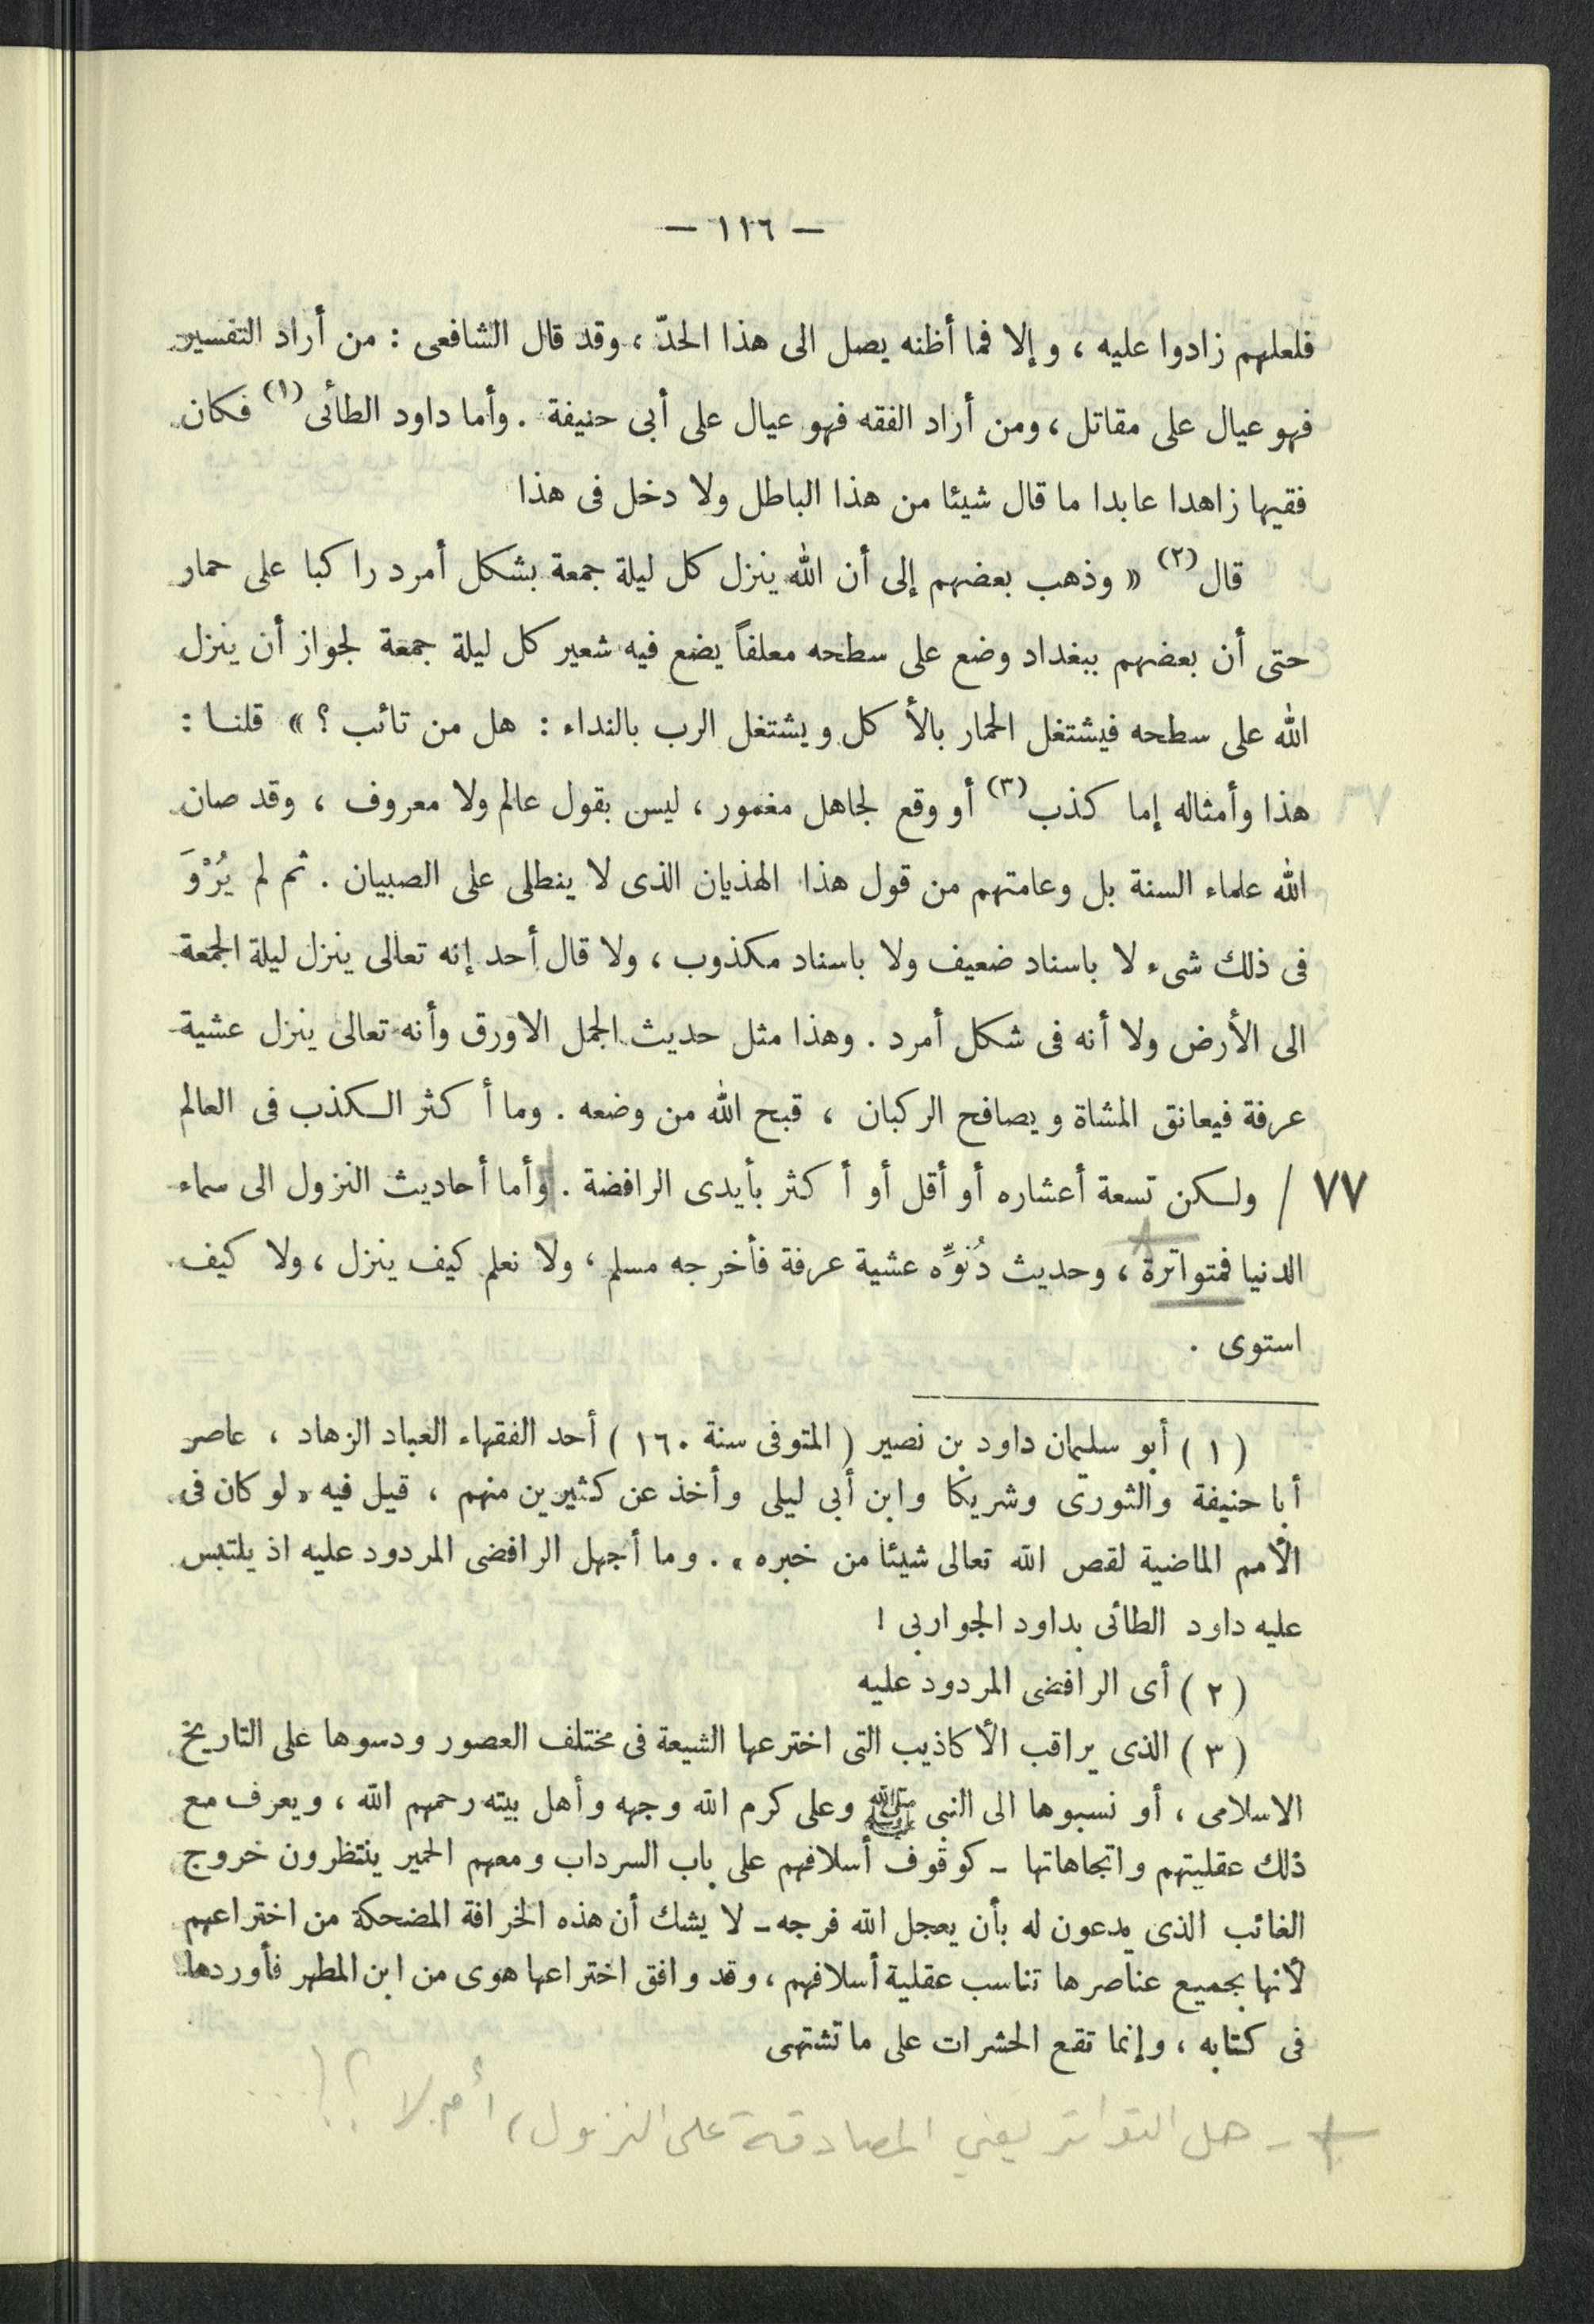 — ١١٦ —
فلعلهم زادوا عليه ، وإلا فما أظنه يصل الى هذا الحدّ ، وقد قال الشافعى : من أراد التفسير
فهو عيال على مقاتل ، ومن أراد الفقه فهو عيال على أبى حنيفة . وأما داود الطائى (١) فكان
فقيها زاهدا عابدا ما قال شيئا من هذا الباطل ولا دخل فى هذا
قال (٢) « وذهب بعضهم إلى أن الله ينزل كل ليلة جمعة بشكل أمرد راكبا على حمار
حتى أن بعضهم ببغداد وضع على سطحه معلفاً يضع فيه شعير كل ليلة جمعة لجواز أن ينزل
الله على سطحه فيشتغل الحمار بالأكل ويشتغل الرب بالنداء : هل من تائب ؟ » قلنا :
هذا وأمثاله إما كذب (٣) أو وقع لجاهل مغمور ، ليس بقول عالم ولا معروف ، وقد صان
الله علماء السنة بل وعامتهم من قول هذا الهذيان الذى لا ينطلى على الصبيان . ثم لم يُرْوَ
فى ذلك شىء لا باسناد ضعيف ولا باسناد مكذوب ، ولا قال أحد إنه تعالى ينزل ليلة الجمعة
الى الأرض ولا أنه فى شكل أمرد . وهذا مثل حديث الجمل الاورق وأنه تعالى ينزل عشية
عرفة فيعانق المشاة ويصافح الركبان ، قبح الله من وضعه . وما أكثر الكذب فى العالم
٧٧ / ولكن تسعة أعشاره أو أقل أو أكثر بأيدى الرافضة . وأما أحاديث النزول الى سماء
الدنيا فمتواترة ، وحديث دُنوِّه عشية عرفة فأخرجه مسلم ، ولا نعلم كيف ينزل ، ولا كيف
استوى .
( ١ ) أبو سليمان داود بن نصير ( المتوفى سنة ١٦٠ ) أحد الفقهاء العباد الزهاد ، عاصر
أبا حنيفة والثورى وشريكا وابن أبى ليلى وأخذ عن كثيرين منهم ، قيل فيه « لو كان فى
الأمم الماضية لقص الله تعالى شيئا من خبره » . وما أجهل الرافضى المردود عليه اذ يلتبس
عليه داود الطائى بداود الجواربى !
( ٢ ) أى الرافضى المردود عليه
( ٣ ) الذى يراقب الأكاذيب التى اخترعها الشيعة فى مختلف العصور ودسوها على التاريخ
الاسلامى ، أو نسبوها الى النبى ﷺ وعلى كرم الله وجهه وأهل بيته رحمهم الله ، ويعرف مع
ذلك عقليتهم واتجاهاتها - كوقوف أسلافهم على باب السرداب ومعهم الحمير ينتظرون خروج
الغائب الذى يدعون له بأن يعجل الله فرجه - لا يشك أن هذه الخرافة المضحكة من اختراعهم
لأنها بجميع عناصرها تناسب عقلية أسلافهم ، وقد وافق اختراعها هوى من ابن المطهر فأوردها
فى كتابه ، وإنما تقع الحشرات على ما تشتهى
+ - هل التواتر يعني المصادقة على النزول ، أم لا ؟! ...